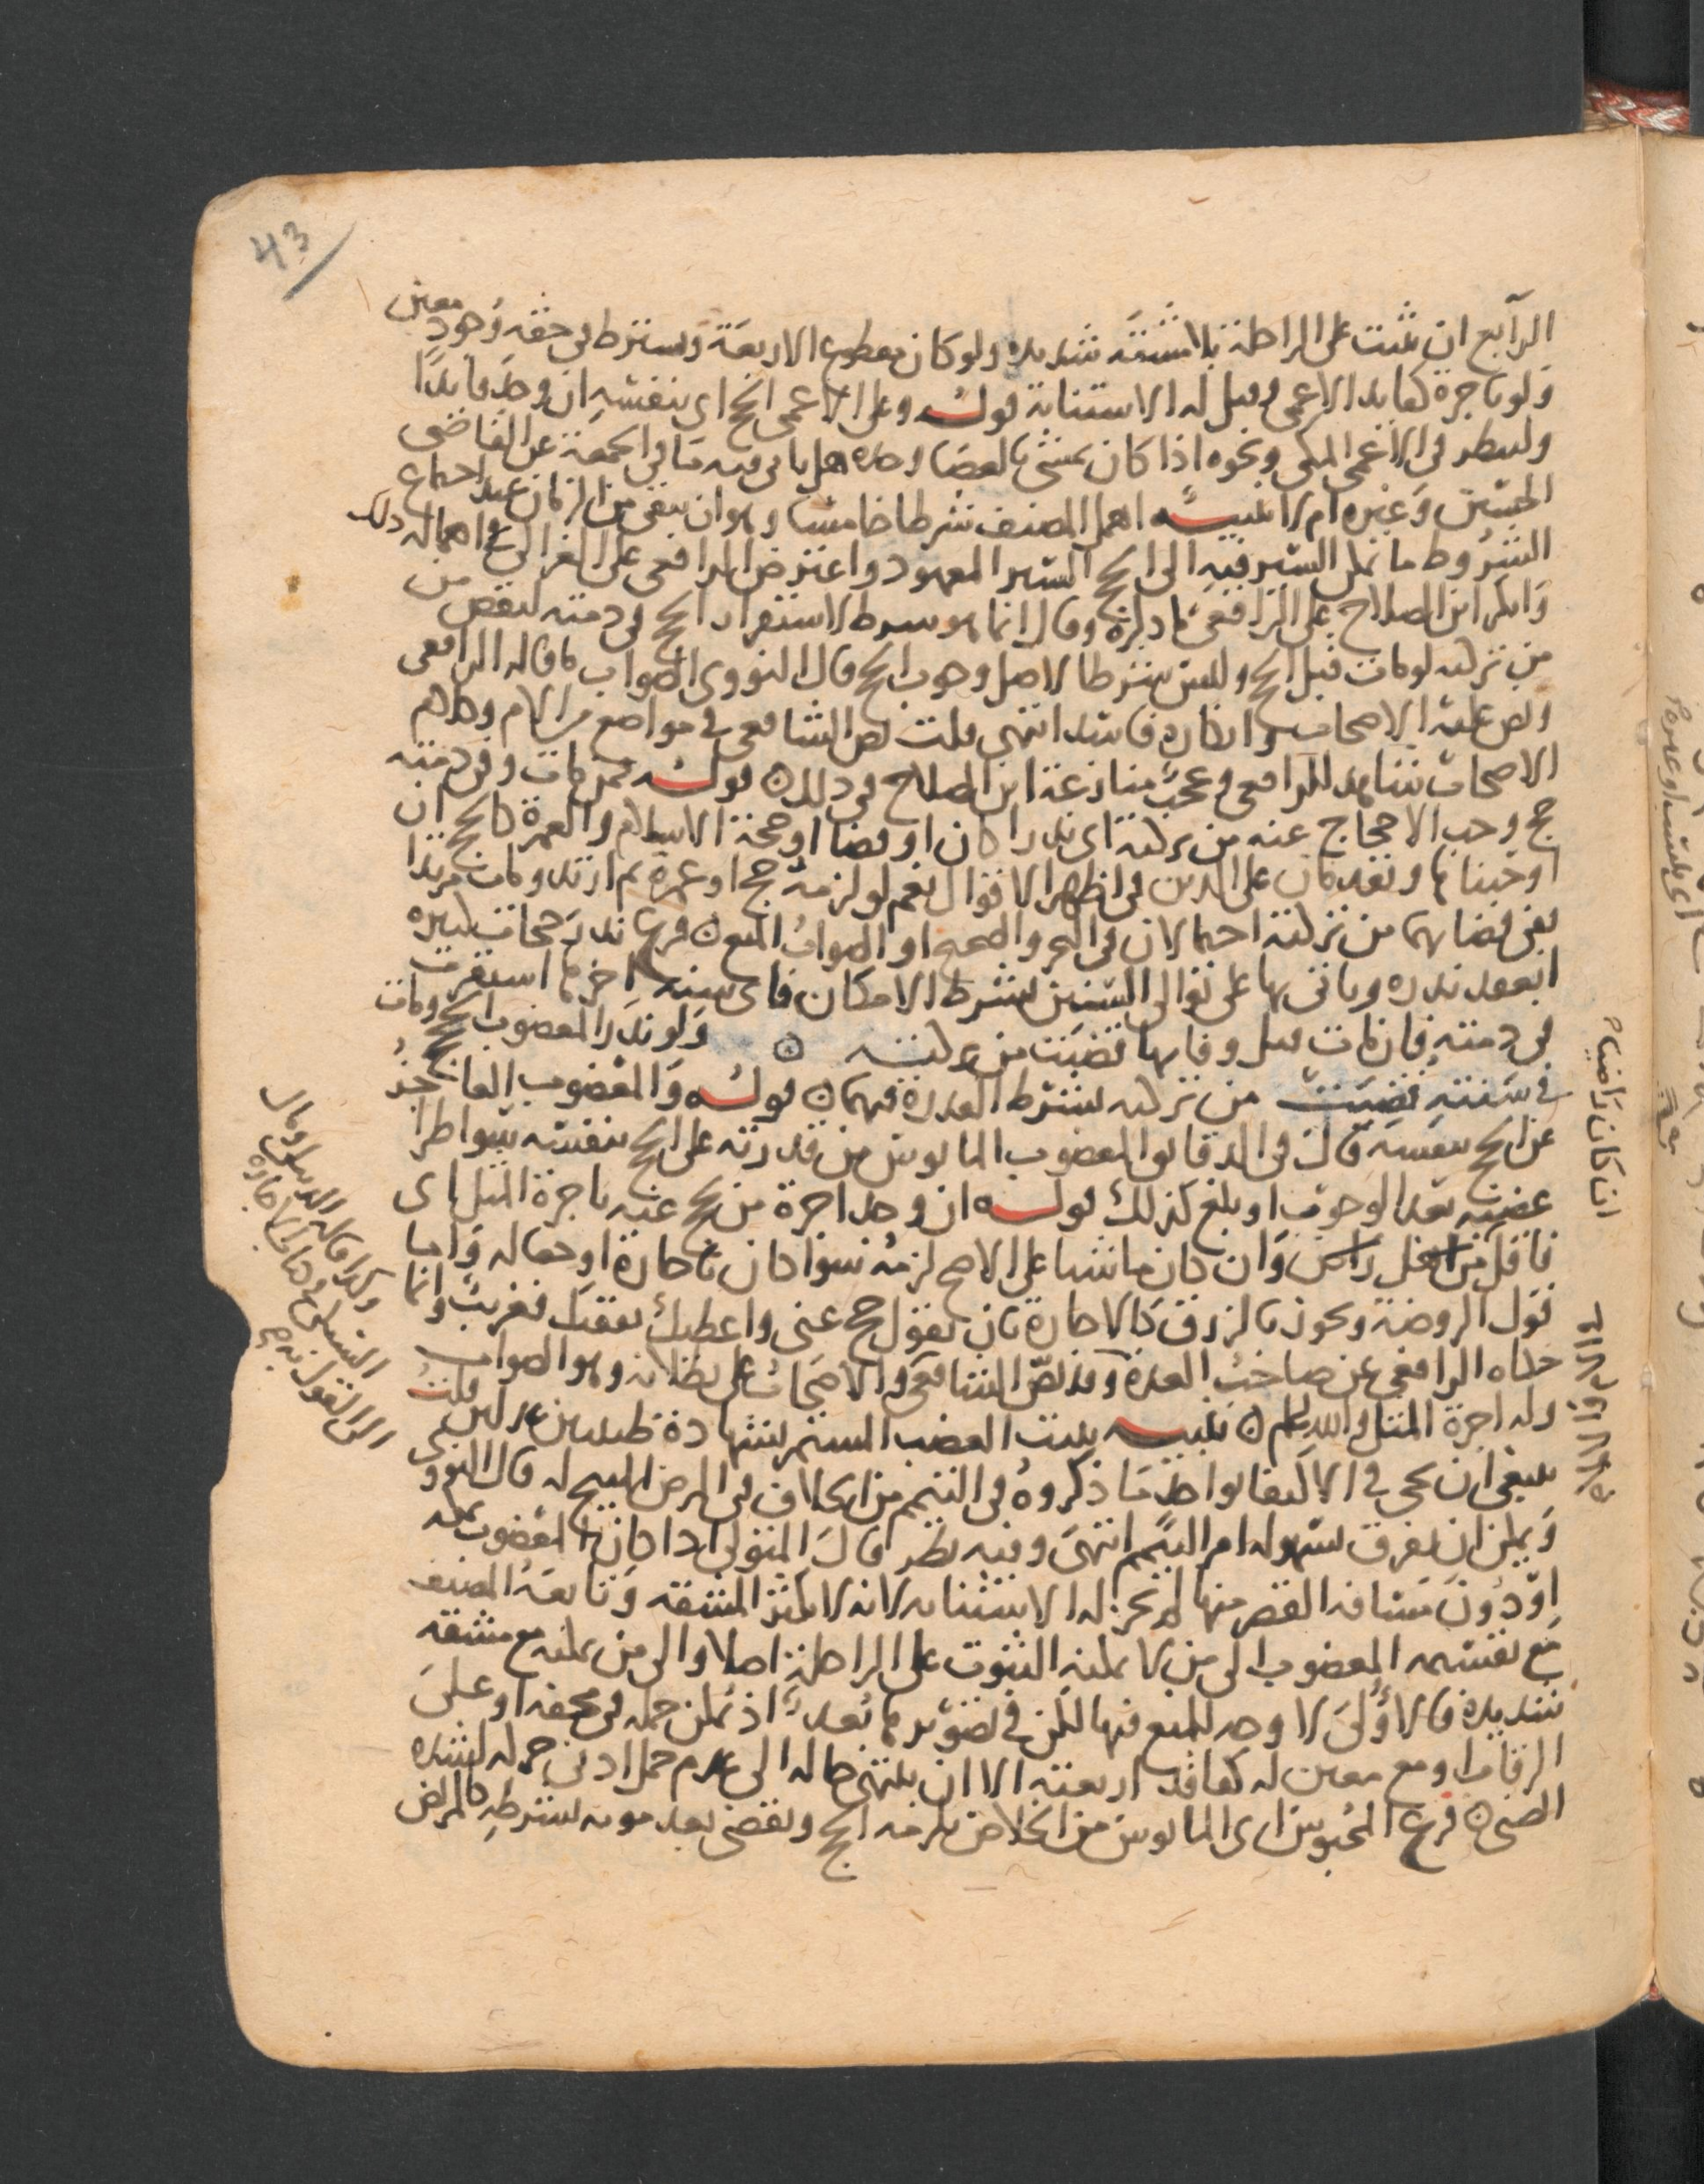 43
الرابع ان يثبت على الراحلة بلا مشقة شديده ولو كان مقطوع الاربعة ويشترط في حقه وجود معين
ولو باجرة كقايد الاعمى وقيل له الاستنابة قوله وعلى الاعمى الحج اى بنفسه ان وجد قايدا
ولينظر في الاعمى المكى ونحوه اذا كان يمشى بالعصا وحده هل ياتى فيه ما في الجمعة عن القاضى
الحسين وغيره ام لا تنبيه اهمل المصنف شرطا خامسا وهو ان يبقى من الزمان عند اجتماع
الشروط ما يمكن السير فيه الى الحج السير المعهود واعترض الرافعى على الغزالى في اهماله ذلك
وانكر ابن الصلاح على الرافعى ما ذكره وقال انما هو شرط لاستقرار الحج في ذمته ليقضى من
من تركته لو مات قبل الحج وليس شرطا لاصل وجوب الحج قال النووى الصواب ما قاله الرافعى
ونص عليه الاصحاب وانكاره فاسد انتهى قلت نص الشافعى في مواضع من الام وكلام
الاصحاب شاهد للرافعى وعجب منازعة ابن الصلاح في ذلك ۞ قوله فمن مات وفي ذمته
حج وجب الاحجاج عنه من تركته اى نذرا كان او قضا او حجة الاسلام والعمرة كالحج ان
اوجبناها وتقدمان على الدين في اظهر الاقوال نعم لو لزمه حج او عمرة ثم ارتد ومات مرتدا
ففى قضايهما من تركته احتمالان في البحر والصحيح او الصواب المنع ۞ فرع نذر حجات كثيره
انعقد نذره وياتى بها على توالى السنين بشرط الامكان فاى سنة اخرها استقرت
في ذمته فان مات قبل وفايها قضيت من تركته ۞ ولو نذر المعضوب الحج ومات
في سنته قضيت من تركته بشرط القدرة فيهما ۞ قوله والمعضوب العاجز
عن الحج بنفسه قال في الدقايق المعضوب المايوس من قدرته على الحج بنفسه سوا طرا
عضبه بعد الوجوب او بلغ كذلك قوله ان وجد اجرة من يحج عنه باجرة المثل اى
فاقل من اهل راض وان كان ماشيا على الاصح لزمه سوا كان باجارة او جعاله واما
قول الروضة ويجوز بالرزق كالاجارة بان يقول حج عنى واعطيك نفقتك فغريب وانما
حكاه الرافعى عن صاحب العدة وقد نص الشافعى والاصحاب على بطلانه وهو الصواب
وله اجرة المثل والله اعلم ۞ تنبيه يثبت العضب المستمر بشهادة طبيبين عدلين قلت
ينبغى ان يجى في الاكتفا بواحد ما ذكروه في التيمم من الخلاف في المرض المبيح له قال النووى
ويمكن ان يفرق بسهولة امر التيمم انتهى وفيه نظر قال المتولى اذا كان المعضوب بمكه
او دون مسافة القصر منها لم تجز له الاستنابه لانه لا تكثر المشقة وتابعه المصنف
مع تقسيمه المعضوب الى من لا يمكنه الثبوت على الراحلة اصلا والى من يمكنه مع مشقه
شديدة فالاولى لا وجه للمنع فيها لكن في تصويرها بعد اذ يمكن حمله في محفه او على
الرقاب او مع معين له كفاقد اربعته الا ان ينتهى حاله الى عدم حمل ادنى حركه لشدة
الضنى ۞ فرع المحبوس اى المايوس من الخلاص يلزمه الحج ويقضى بعد موته بشرطه كالمريض
ان كان راضيا
وكذا قاله